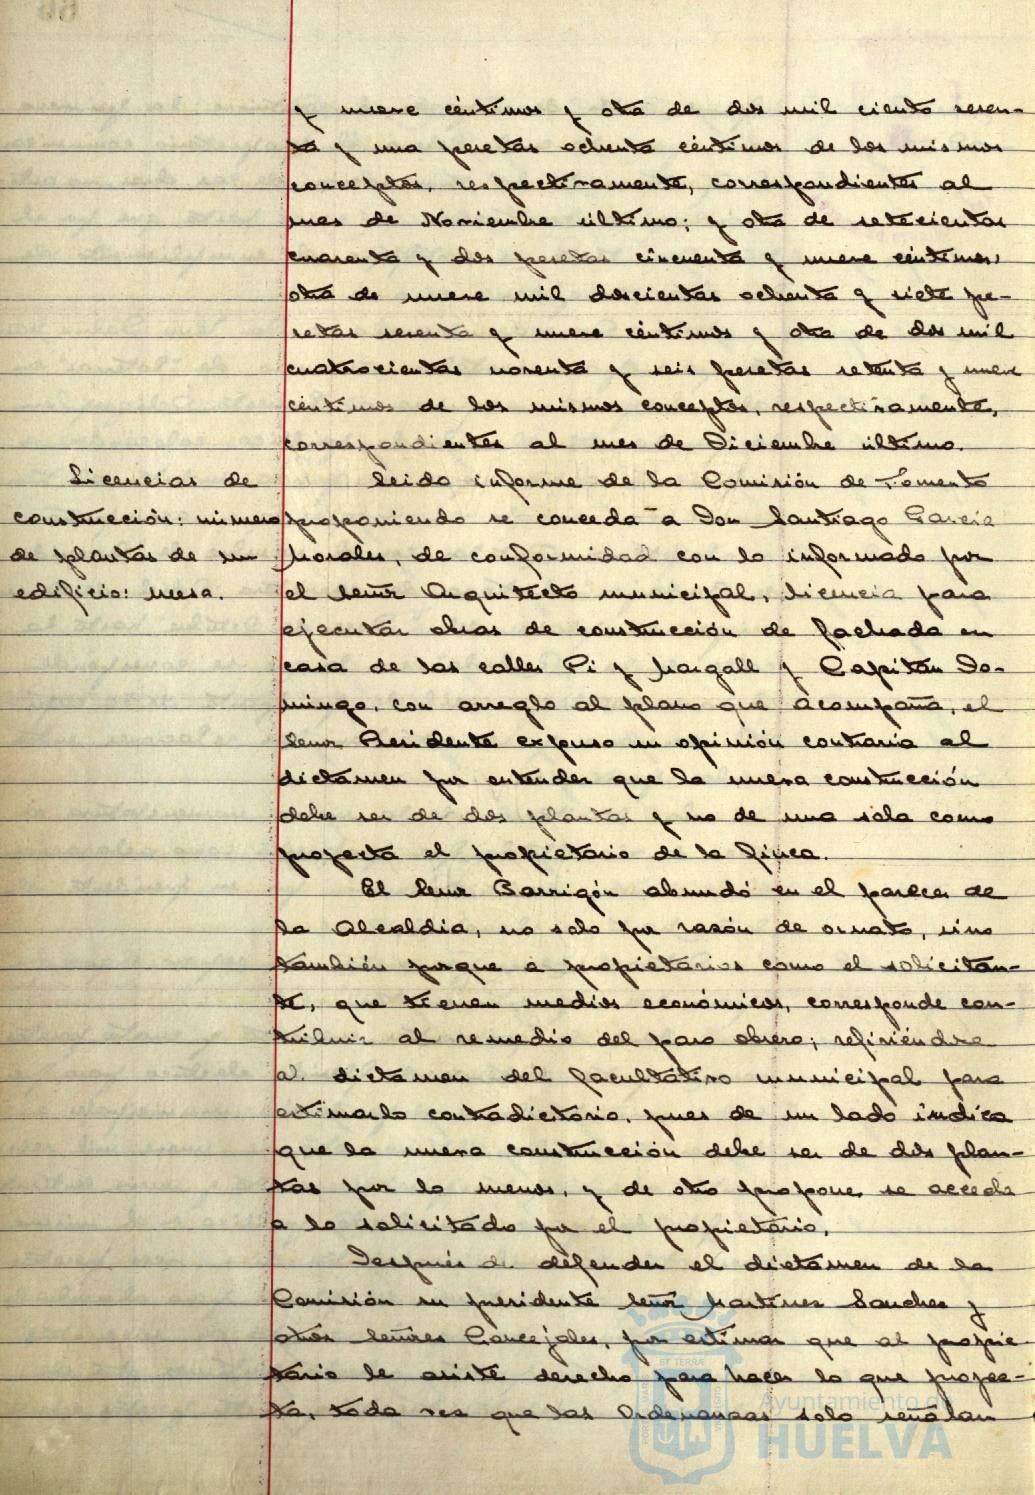 y nueve céntimos y otra de dos mil ciento sesen-
ta y una pesetas ochenta céntimos de los mismos
conceptos, respectivamente, correspondientes al
mes de Noviembre último; y otra de setecientas
cuarenta y dos pesetas cincuenta y nueve céntimos;
otra de nueve mil doscientas ochenta y siete pe-
setas sesenta y nueve céntimos y otra de dos mil
cuatrocientas noventa y seis pesetas setenta y nueve
céntimos de los mismos conceptos, respectivamente,
correspondientes al mes de Diciembre último.
Licencias de
construcción: número
de plantas de un
edificio: mesa.
Leido informe de la Comisión de Fomento
proponiendo se conceda a Don Santiago García
Morales, de conformidad con lo informado por
el señor Arquitecto municipal, licencia para
ejecutar obras de construcción de fachada en
casa de las calles Pi y Margall y Capitán Do-
mingo, con arreglo al plano que acompaña, el
Señor Presidente expuso su opinión contraria al
dictámen por entender que la nueva construcción
debe ser de dos plantas y no de una sola como
proyecta el propietario de la finca.
El Señor Barrigón abundó en el parecer de
la Alcaldía, no solo por razón de ornato, sino
también porque a propietarios como el solicitan-
te, que tienen medios económicos, corresponde con-
tribuir al remedio del paro obrero; refiriéndose
al dictamen del facultativo municipal para
estimarlo contradictorio, pues de un lado indica
que la nueva construcción debe ser de dos plan-
tas por lo menos, y de otro propone se acceda
a lo solicitado por el propietario.
Después de défender el dictámen de la
Comisión su presidente Señor Martínez Sanchez y
otros Señores Concejales, por estimar que al propie-
tario le asiste derecho para hacer lo que proyec-
ta, toda vez que las Ordenanzas solo señalan
ET TERRÆ
Ayuntamiento de
HUELVA